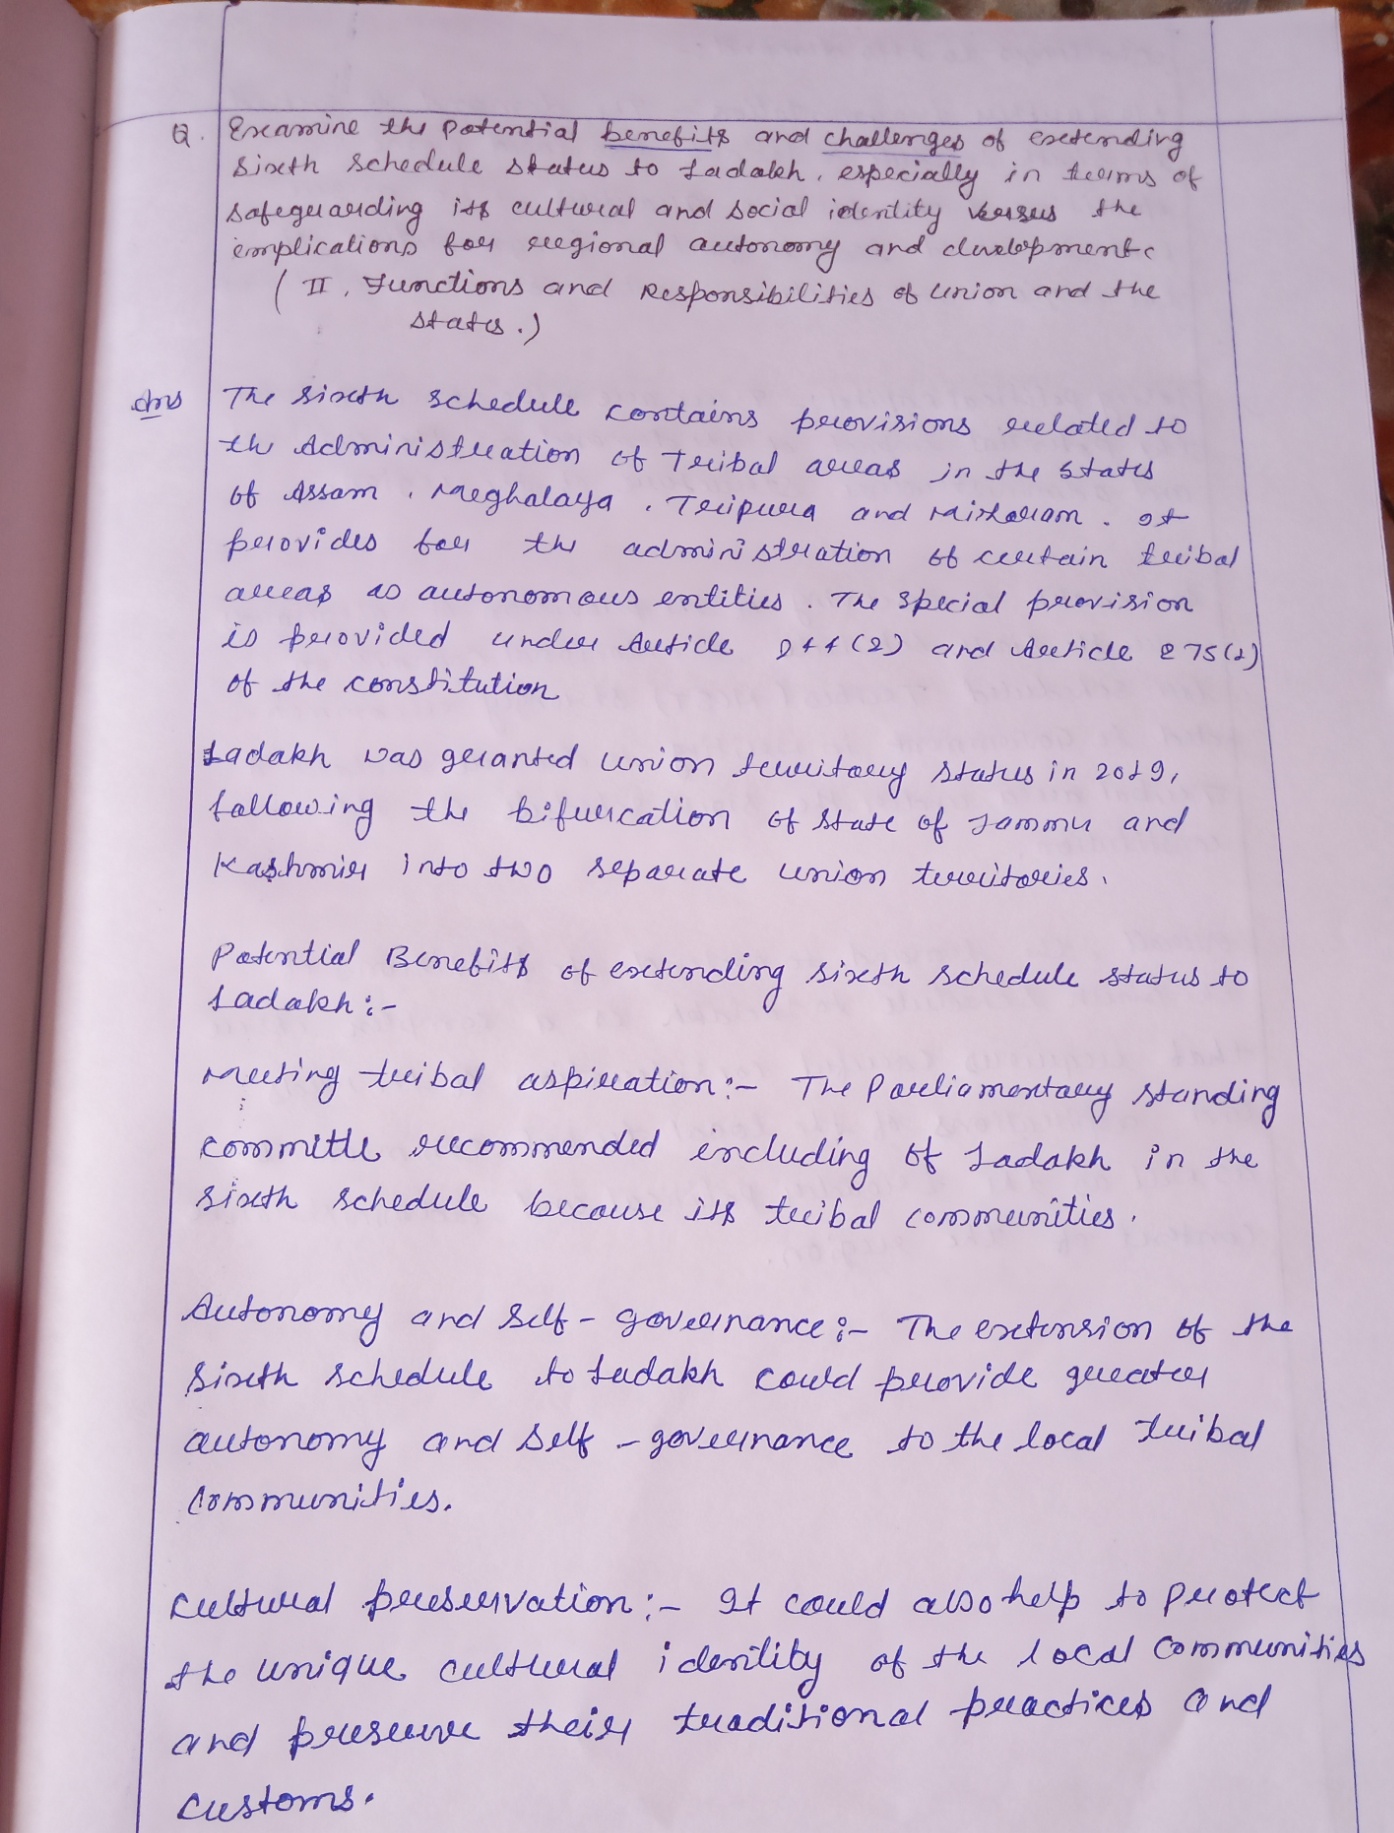 Q. Examine the Potential benefits and challenges of extending
Sixth Schedule status to Ladakh, especially in terms of
safeguarding its cultural and social identity versus the
implications for regional autonomy and development.
( II, Functions and Responsibilities of Union and the
states.)
Ans The Sixth Schedule contains provisions related to
the Administration of Tribal areas in the states
of Assam, Meghalaya, Tripura and Mizoram. It
provides for the administration of certain tribal
areas as autonomous entities. The special provision
is provided under Article 244(2) and Article 275(1)
of the constitution
Ladakh was granted union territory status in 2019,
following the bifurcation of state of Jammu and
Kashmir into two separate union territories.
Potential Benefits of extending sixth schedule status to
Ladakh:-
Meeting tribal aspiration:- The Parliamentary standing
committe recommended including of Ladakh in the
sixth schedule because its tribal communities.
Autonomy and Self-governance:- The extension of the
Sixth schedule to Ladakh could provide greater
autonomy and self-governance to the local tribal
communities.
Cultural preservation:- It could also help to protect
the unique cultural identity of the local communities
and preserve their traditional practices and
customs.